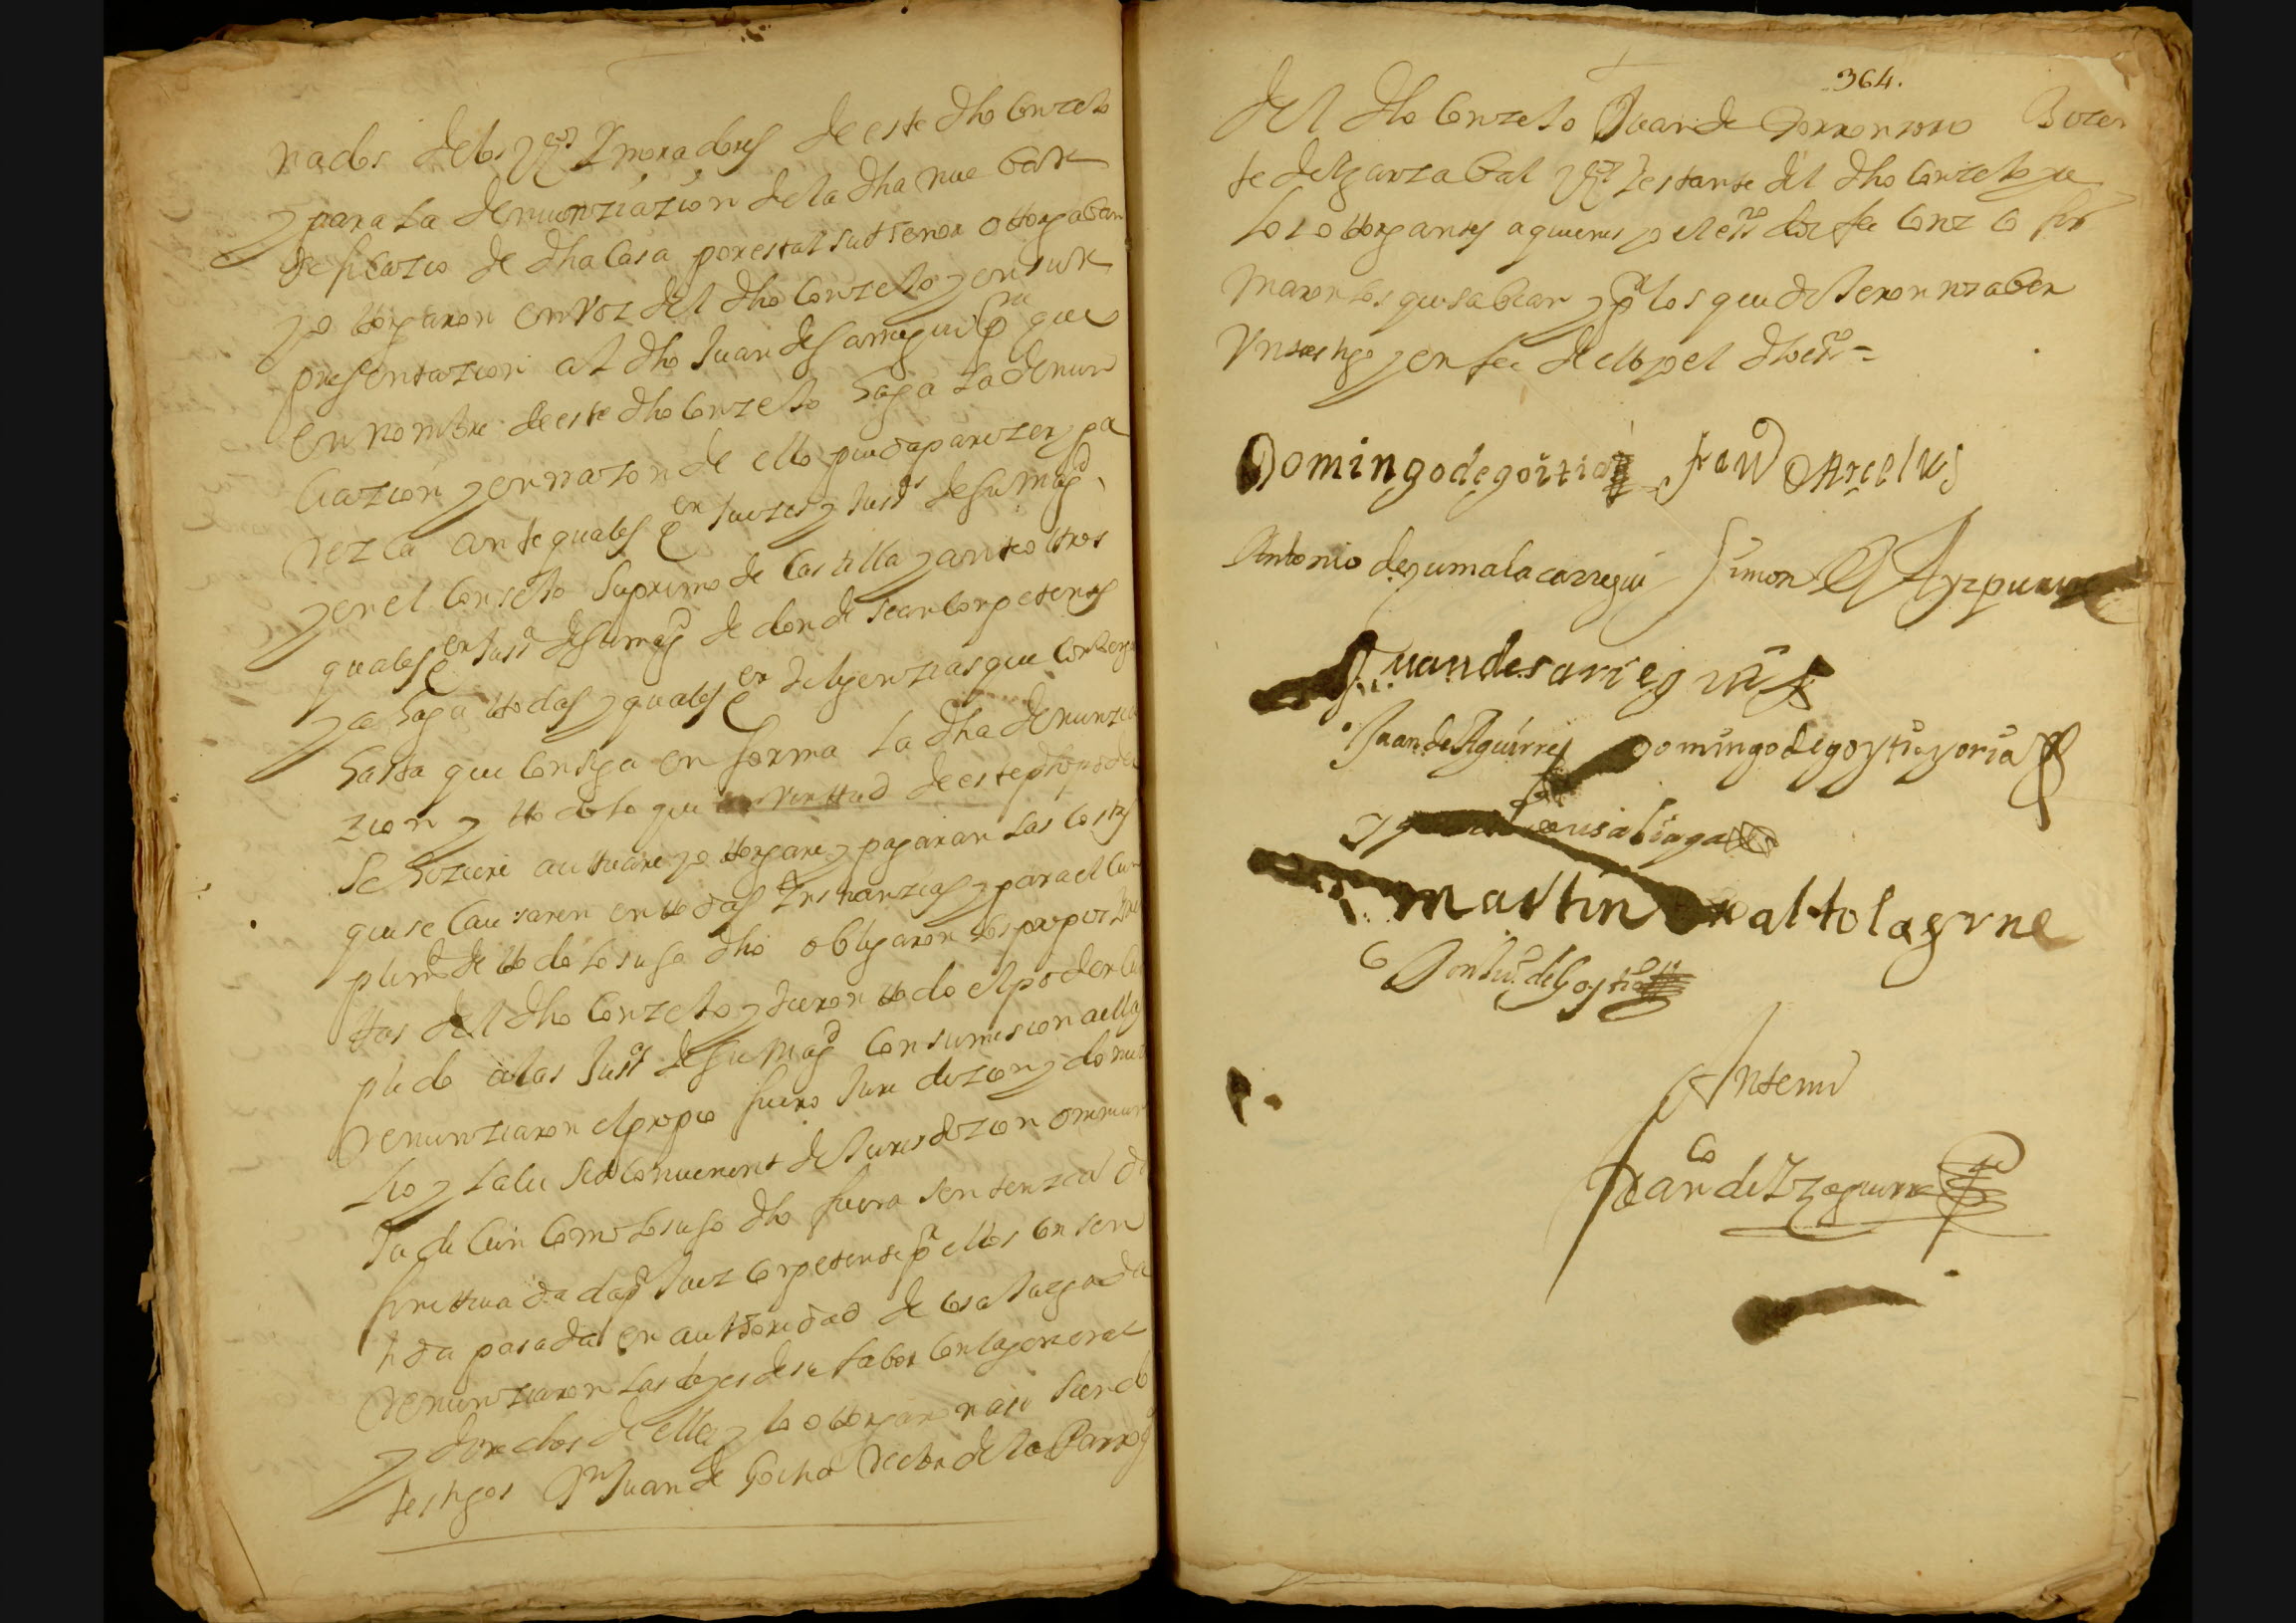 nados de los Vs.os Y moradores de este dho Conzeto
y para la denunziazion de la dha nue
de ficazio de dha Casa por estal su tenor ottorgaban
y ottorgaron en voz del dho Conzeto y en su re
presentazion al dho Juan de Sarregui pa que
en nombre de este dho Conzeto haga la denun
ciazion y en razon de ello pueda parezer y pa
rezca ante quales q en Juezes y Juss.as de Su Magd.
y en el Consejo Supremo de Castilla y ante ottros
quales q en Juss.as de Su magd de donde sean Conpetentes
y a haga ttodas y quales q er diligenzias que
hasta que Consiga en forma la dha denunzia
zion y ttodo lo que en virttud de este dho poder
se hiziere auttuare y ottorgare y pagaran las costtas
que se Causaren en ttodas Ynstanzias y para el Cun
plimto de ttodo lo suso dho obligaron los propios y
ttas del dho Conzeto y dieron ttodo el poder Cun
plido a las Juss.as de Su Magd Con sumision a ellas
renunziaron el propio fuero Juridizion y domiz
lio y la lei sid Conuenerit de Jurisdizion omniun
Judicun Como si lo suso dho fuera sentenzia di
finittiua dada por Juez Conpetente pr ellos Consen
tida y pasada en authoridad de Cosa Juzgada
renunziaron las leyes de su fabor Con la general
y derechos de ella y lo ottorgaron asi siendo
testigos Dn Juan de Goitia rector de la Parrog
364.
del dho Conzeto Juan de Gorronsoro Bizen
te de Yganzabal Vs.os Y estante del dho Conzeto y a
los ottorgantes a quienes yo el essno doi fee Conozco fir
maron los que sabian y pr los que dixeron no saber
Un testigo y en fee de ello yo el dho essno =
Domingo de goitia Juan D Arcelus
Antonio de zumalacarregui Simon D Ayzpurua
Juan de sarregui
Juan de Aguirre Domingo de goytia y oria
ausaliaga
martin de altolaguirre
Don Juo. de Goytia
Antemi
Juan de Yzaguirre